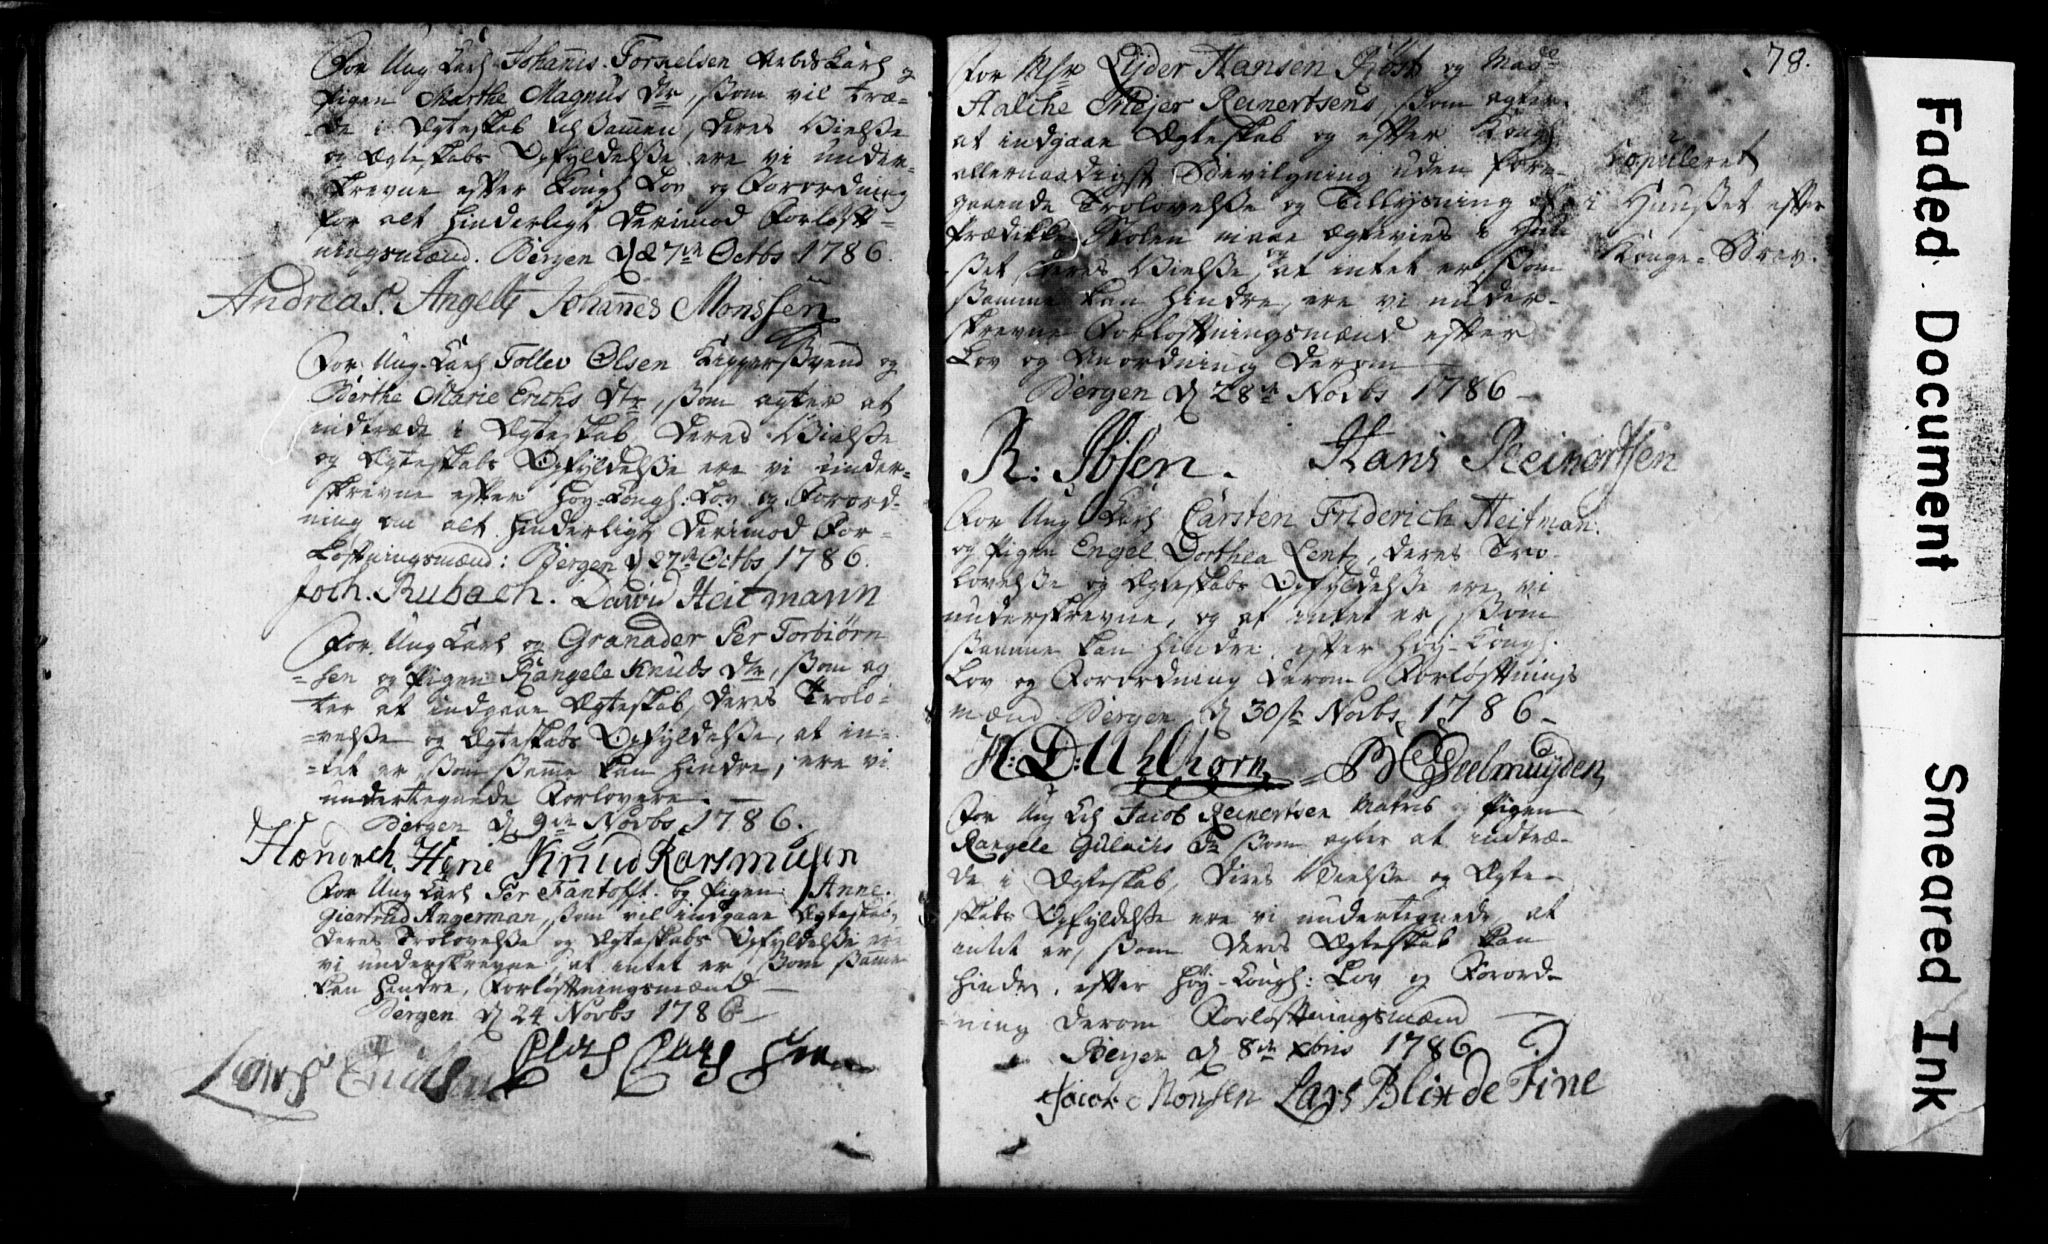 For Ung Karl Johanis Tornelsen Arbds karl og
Pigen Marthe Magnus Dtr, som vil træ=
de i Ægteskab tilsammen, deres Vielse
og Ægteskabs Opfyldelse ere vi under=
skrevne efter Kongl Lov og Forordning
for alt hinderligt derimod Forløft=
ningsmænd. Bergen d 7de Octbs 1786.
Andreas. Angell Johannes Monssen
For Ung Karl Tollev Olsen Kipper Svend og
Birthe Marie Erichs Dtr, som agter at
indtræde i Ægteskab deres Vielse
og Ægteskabs Opfyldelse ere vi under=
skrevne efter Høy-Kongl: Lov og Forord=
ning om alt hinderligt derimod For=
løftningsmænd: Bergen d 27de Octbs 1786.
Joch. Rubach. David Heitmann
For Ung Karl og Granader Per Torbiørn
=sen og Pigen Rangele Knuds Dtr, som ag
=ter at indgaae Ægteskab, deres Trolo=
=velse og Ægteskabs Opfyldelse, at in=
=tet er som samme kan hindre, ere vi
undertegnede Forlovere. —
Bergen d 9de Novbs 1786.
Hendrich Knud Rasmusen
For Ung Karl Per Fantoft. og Pigen Anne.
Giertrud Angerman, som vil indgaae Ægteskab,
deres Trolovelse og Ægteskabs Opfyldelse ere
vi underskrevne at intet er som samme
kan hindre, Forløftningsmænd —
Bergen d 24 Novbs 1786 —
78.
For Msr Lyder Hansen Röst og Mad
Aalche Mejer Reinertsens, som agter
at indgaae Ægteskab og efter Kongl
allernaadigst Bevilgning uden fore=
gaaende Trolovelse og Tillysning af
Prædike Stolen maae ægtevies i Huu
set deres Vielse, og at intet er, som
samme kan hindre, ere vi under=
skrevne Forløftningsmænd efter
Lov og Anordning derom
Bergen d 28de Novbs 1786 —
Kopuleret
i Huuset efter
Konge=Brev.
R: Ibsen. Hans Reinertsen
For Ung Karl Carsten Friderich Heitman.
og Pigen Engel Dorthea Lentz, deres Tro=
lovelse og Ægteskabs Opfyldelse ere vi
underskrevne, og at intet er, som
samme kan hindre efter Høy-Kongl.
Lov og Forordning derom Forløftnings
mænd Bergen d 30te Novbs 1786 —
H: D: Uhlhorn Geelmuyden
For Ung Karl Jacob Reinertsen Matros og Pigen
Rangele Gulachs Dtr som agter at indtræ=
de i Ægteskab, deres Vielse og Ægte=
skabs Opfyldelse ere vi undertegnede, at
intet er, som deres Ægteskab kan
hindre, efter Høy-Kongl: Lov og Forord=
=ning derom Forløftningsmænd —
Bergen d 8de Xbris 1786
Jacob Monsen Lars Blix de Fine
Faded Document
Smeared Ink